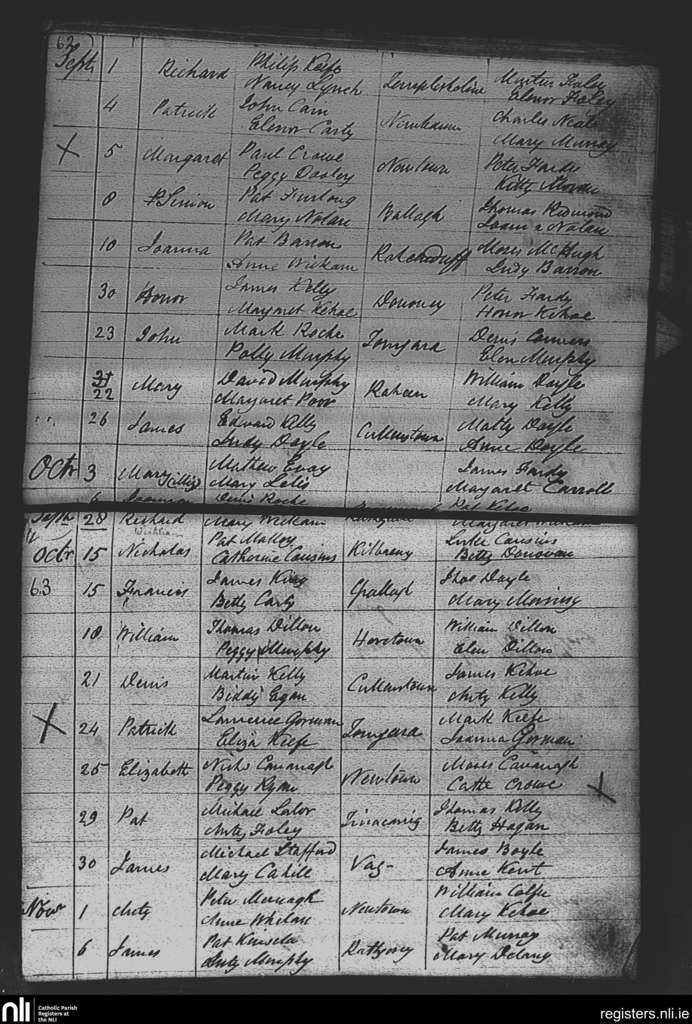 62
Sept 1 Richard Philip Keefe Nancy Lynch Martin Foley Elenor Foley
4 Patrick John Cain Elenor Carty Newbawn Charles Neal Mary Murray
X 5 Margaret Paul Crowe Peggy Dooley Newtown Peter Hardy Kitty
8 Simon Pat Furlong Mary Nolan Ballagh Thomas Redmond Joanna Nolan
10 Joanna Pat Barron Anne Wickam Rahenduff Moses McHugh Judy Barron
30 Honor James Kelly Margaret Kehoe Peter Hardy Honor Kehoe
23 John Mark Roche Polly Murphy Tomgara Denis Connors Elen Murphy
22 Mary David Murphy Margaret Poor Raheen William Doyle Mary Kelly
26 James Edward Kelly Judy Doyle Cullenstown Matty Doyle Anne Doyle
Octr 3 Mary Mathew Mary James Hardy Margaret Carroll
6 Joanna Denis Roche Pat Kehoe
Septr 28 Richard Mary Wickam Margaret
Octr 15 Nicholas Pat Malloy Catherine Cousins Kilbrany Luke Cousins Betty Donovan
63 15 Francis James King Betty Carty Thos Doyle Mary
18 William Thomas Dillon Peggy Murphy Horetown William Dillon Elen Dillon
21 Denis Martin Kelly Biddy Egan Cullenstown James Kehoe Anty Kelly
X 24 Patrick Lawrence Gorman Eliza Keefe Tomgara Mark Keefe Joanna Gorman
25 Elizabeth Nichs Cavanagh Peggy Ryan Newtown Moses Cavanagh Catte Crowe X
29 Pat Michael Lalor Anty Foley Thomas Kelly Betty Hagan
30 James Michael Stafford Mary Cahill Vag- James Boyle Anne Kent
Novr 1 Anty Peter Anne Whelan Newtown William Colfer Mary Kehoe
6 James Pat Kinsela Anty Murphy Pat Murray Mary
nli Catholic Parish Registers at the NLI
registers.nli.ie